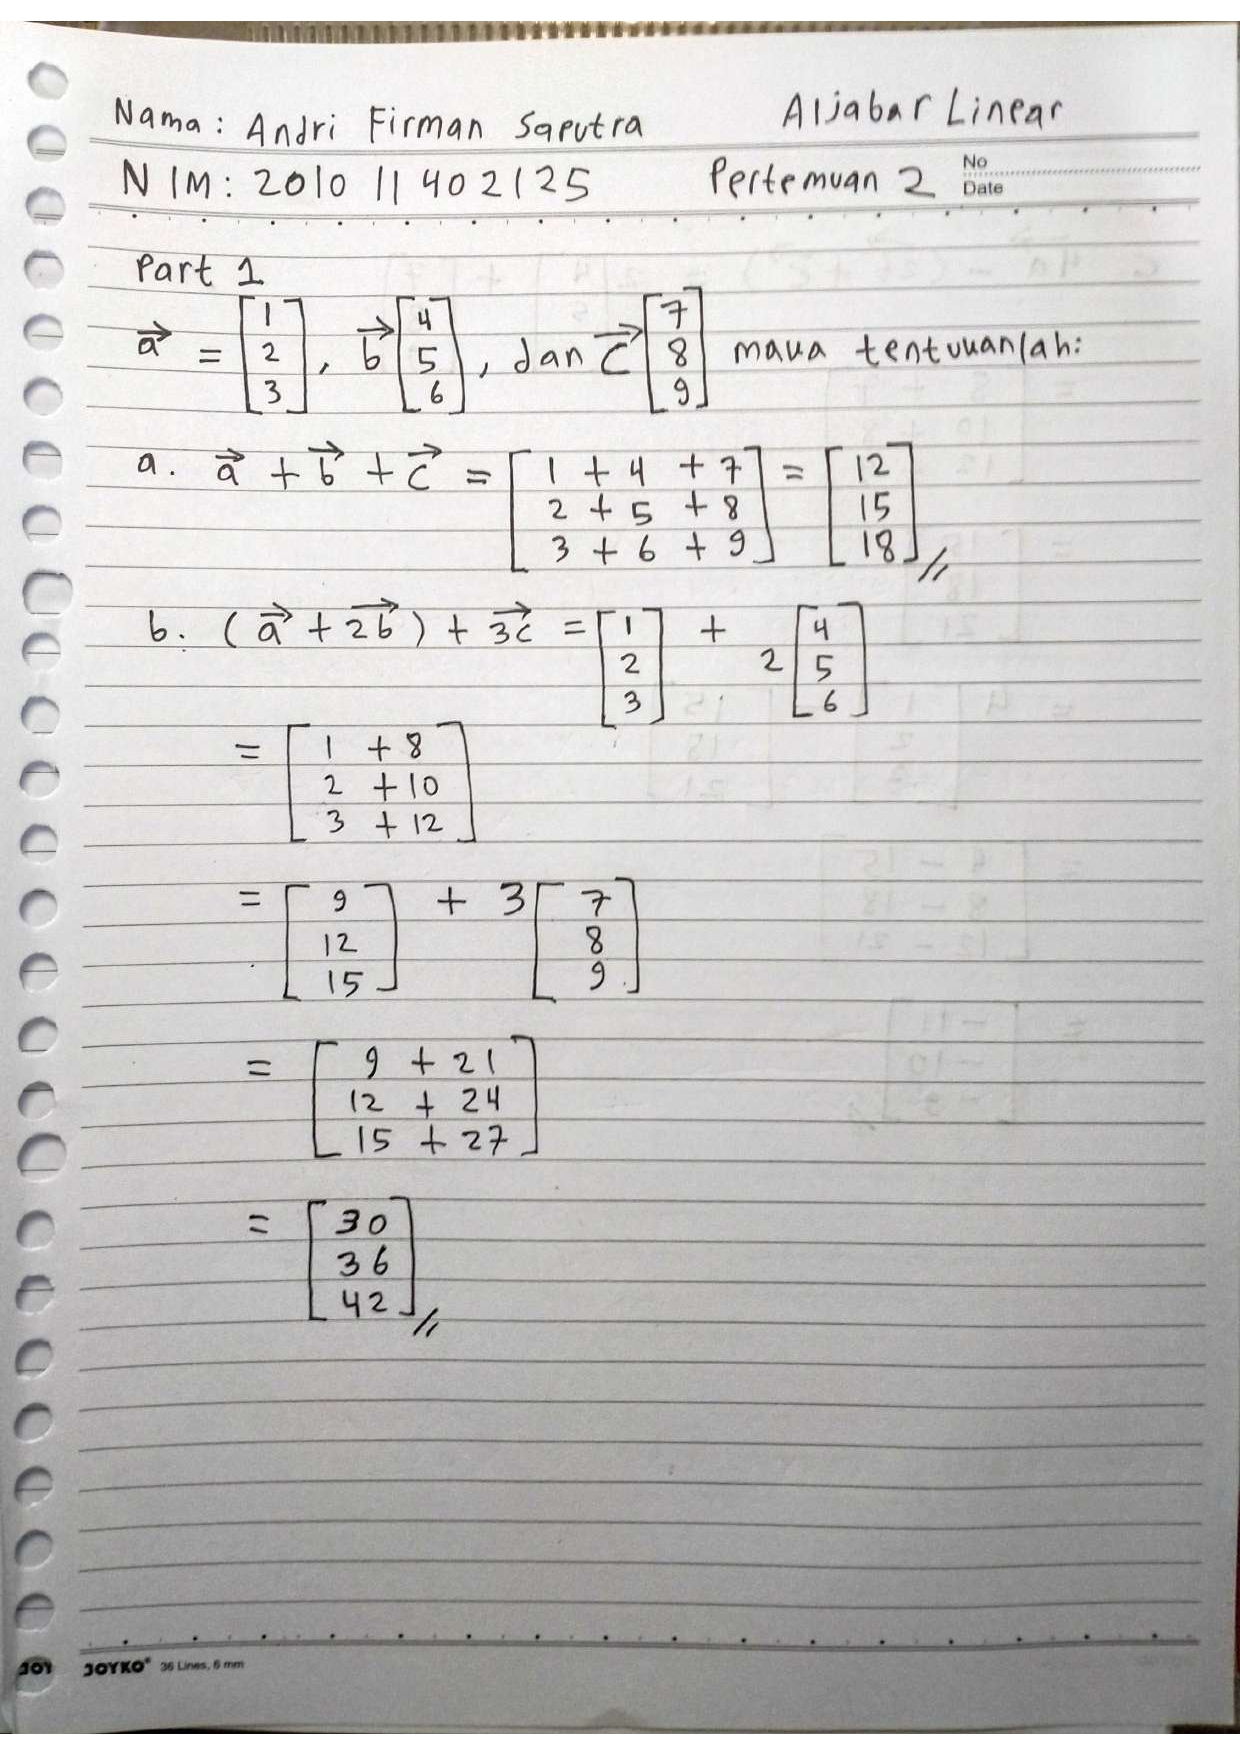 Nama : Andri Firman Saputra Aljabar Linear
NIM : 2010 11 402125 Pertemuan 2 No
Date
Part 1
a⃗ = [1 2 3], b⃗ [4 5 6], dan c⃗ [7 8 9] maka tentukanlah:
a. a⃗ + b⃗ + c⃗ = [1 + 4 + 7
2 + 5 + 8
3 + 6 + 9] = [12 15 18] //
b. (a⃗ + 2b⃗) + 3c⃗ = [1 2 3] + 2 [4 5 6]
= [1 + 8
2 + 10
3 + 12]
= [9 12 15] + 3 [7 8 9]
= [9 + 21
12 + 24
15 + 27]
= [30
36
42] //
JOY JOYKO® 36 Lines, 6 mm